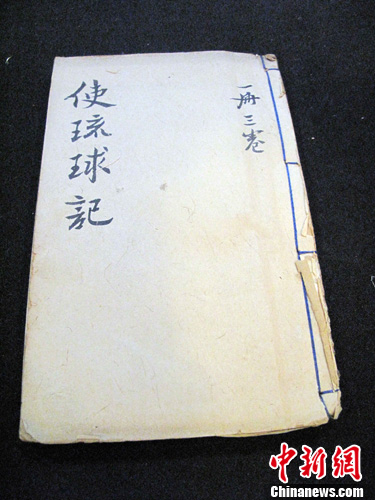 使琉球記
一册三卷
中新网
Chinanews.com